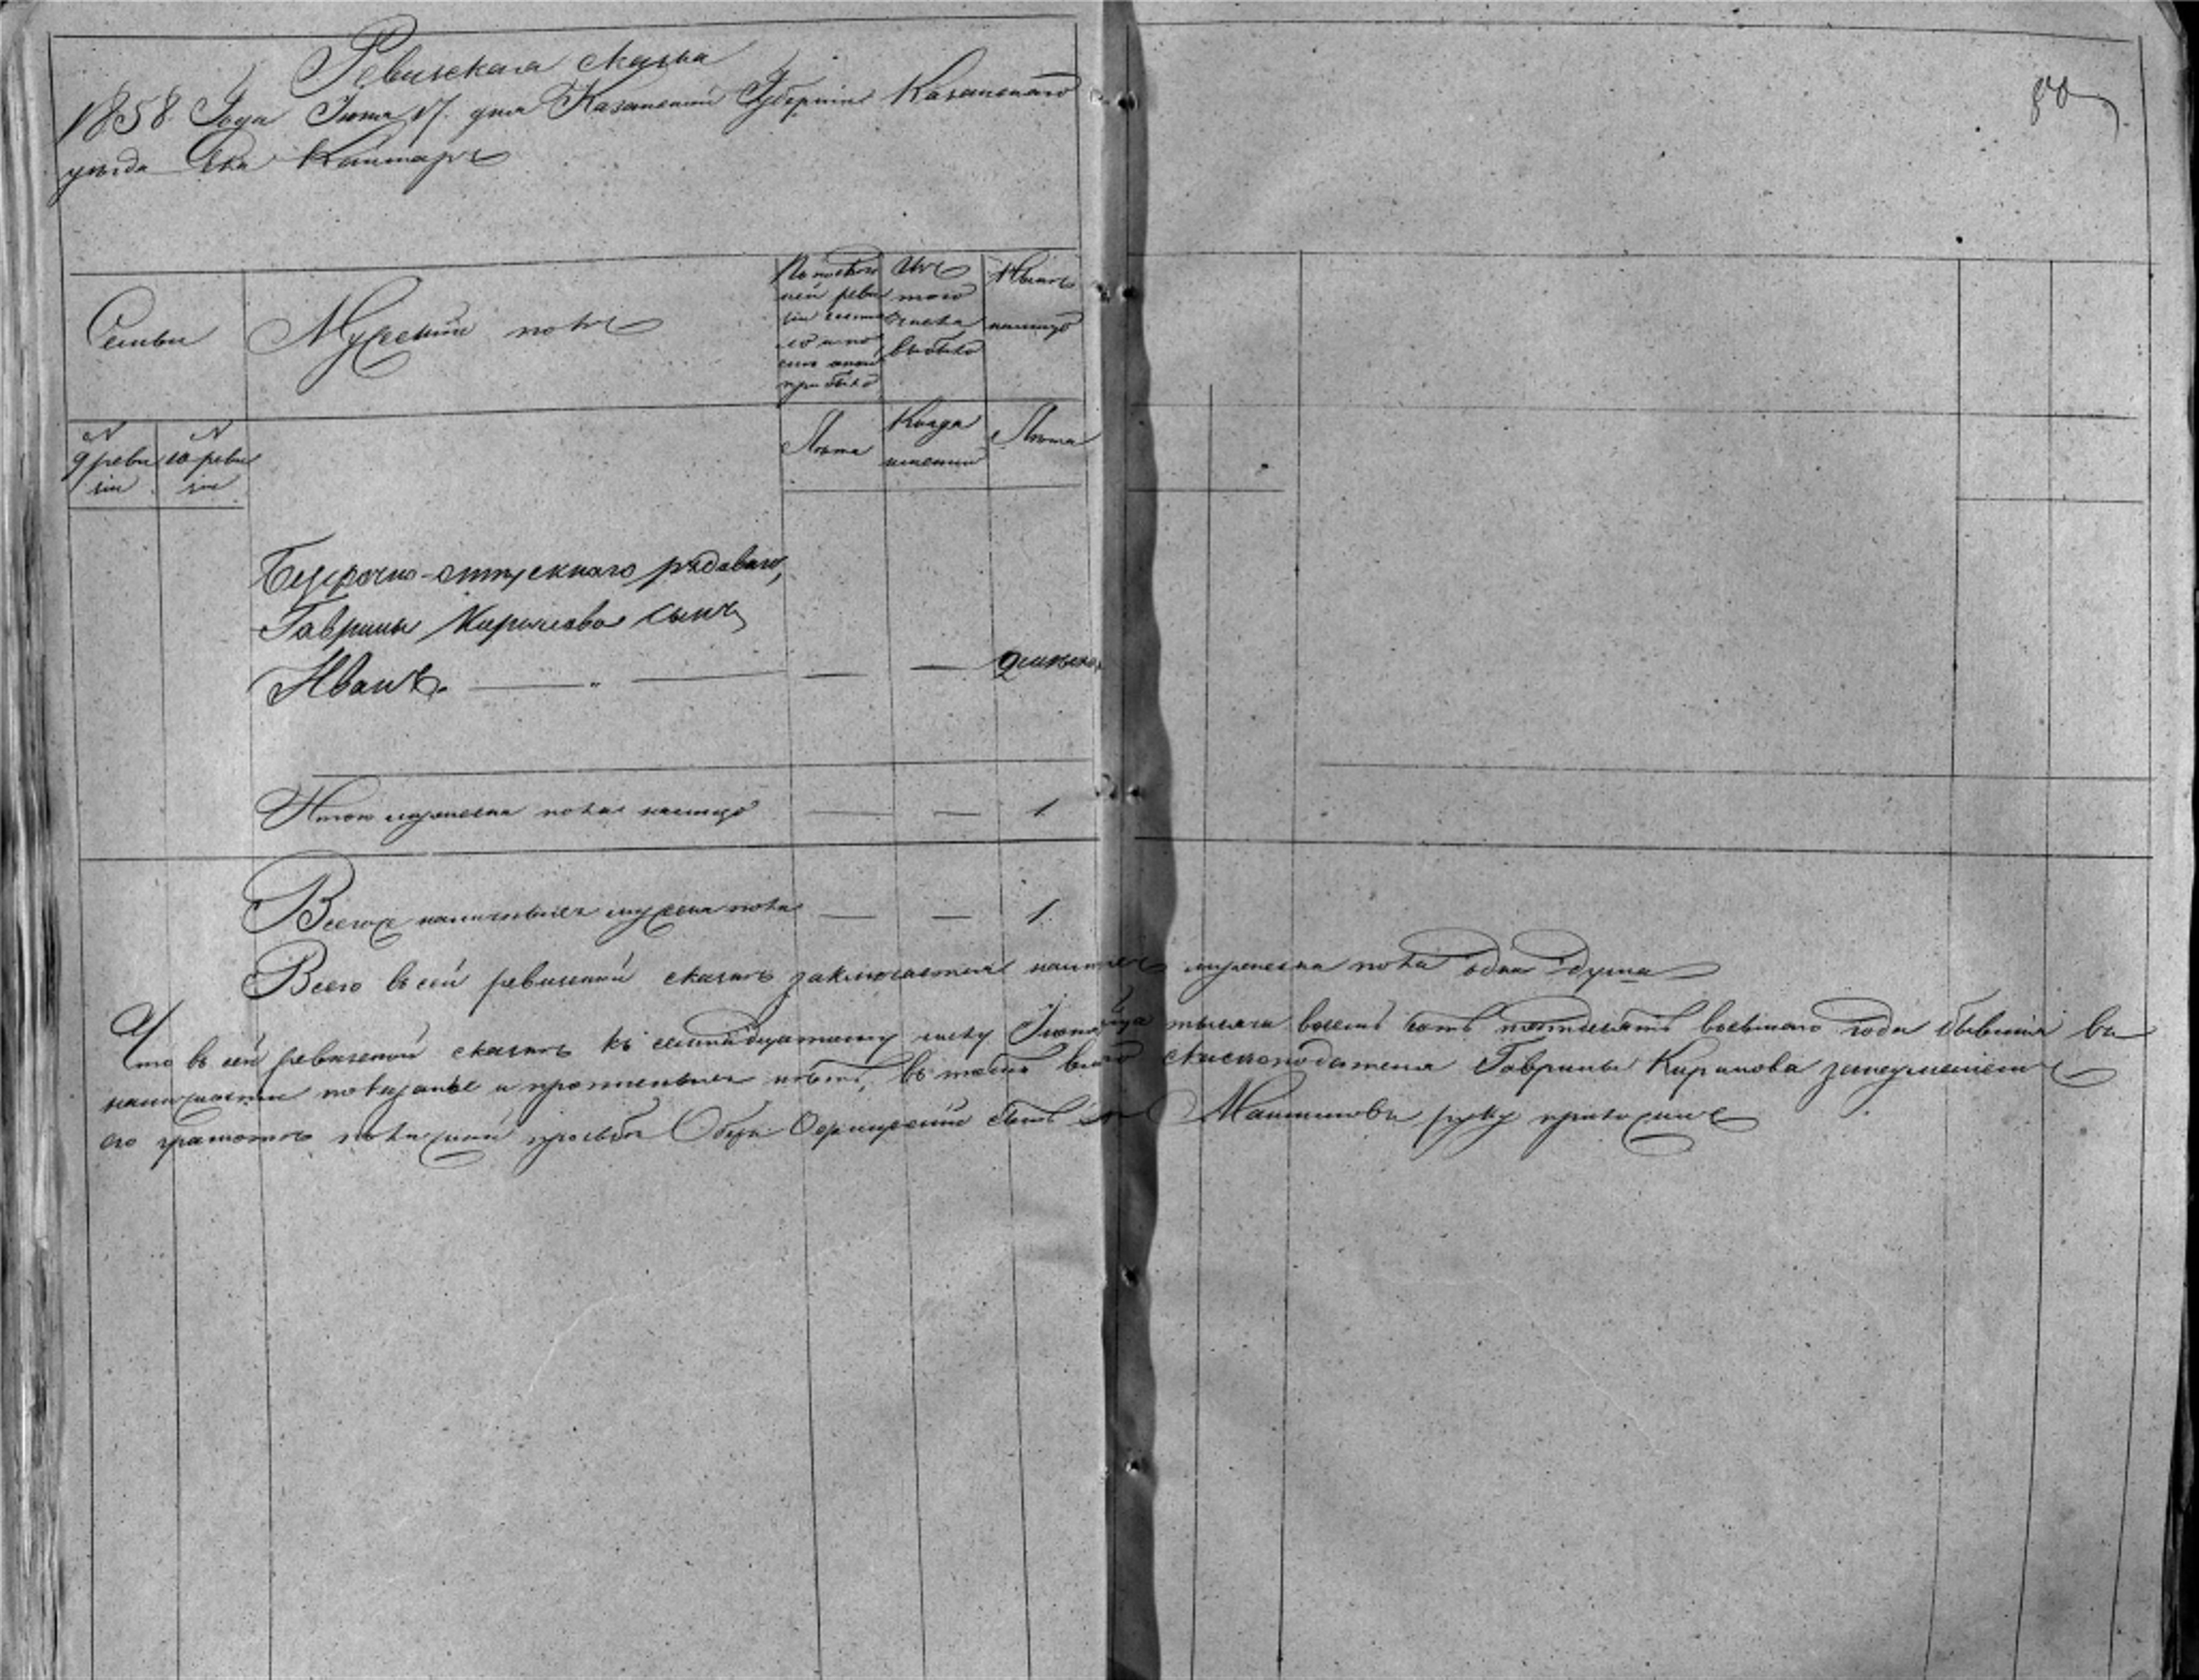 Ревизская сказка
1858 Года Іюня 17. дня Казанской Губерніи Казанскаго
уѣзда Села Каймаръ
80
Семьи
Мужескій полъ
По послѣд
ней реви
зіи состоя
ло и по
слѣ оной
прибыло
Изъ
того
числа
выбыло
Нынѣ
налицо
№
9 реви
зіи
№
10 реви
зіи
Лѣта
Когда
именно
Лѣта
Безсрочно-отпускнаго рядоваго,
Гаврилы Кирилова сынъ
Иванъ. — " — — — 2
Итого мужеска пола налицо — — 1
Всего наличныхъ мужеска пола — — 1.
Всего въ сей ревизской сказкѣ заключается мужеска пола одна душа
Что въ сей ревизской сказкѣ къ семнадцатому числу Іюня тысяча восемь сотъ пятьдесятъ восьмаго года бывшія въ
наличности показаны и прописныхъ нѣтъ, въ томъ вмѣсто сказкоподателя Гаврилы Кирилова за неумѣніемъ
его грамотѣ по личной просьбѣ руку приложилъ